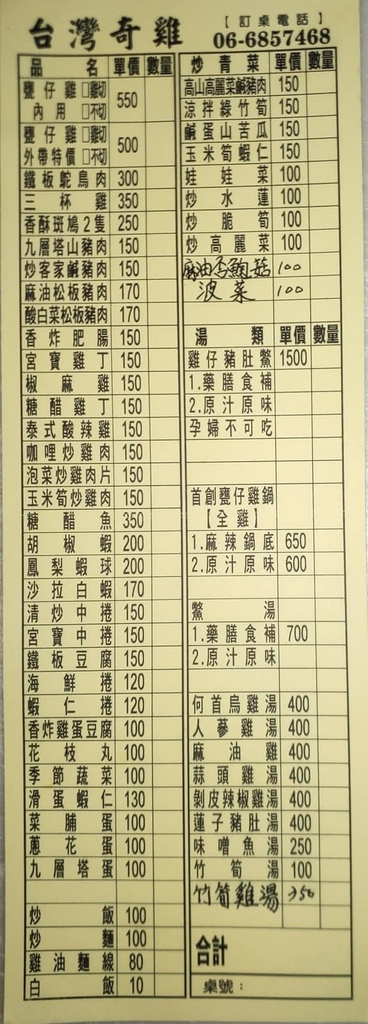 台灣奇雞
【訂桌電話】
06-6857468
品名 單價 數量
甕仔雞 □剁切
內用 □不切
550
甕仔雞 □剁切
外帶特價 □不切
500
鐵板鴕鳥肉 300
三杯雞 350
香酥斑鳩2隻 250
九層塔山豬肉 150
炒客家鹹豬肉 150
麻油松板豬肉 170
酸白菜松板豬肉 170
香炸肥腸 150
宮寶雞丁 150
椒麻雞 150
糖醋雞丁 150
泰式酸辣雞 150
咖哩炒雞肉 150
泡菜炒雞肉片 150
玉米筍炒雞肉 150
糖醋魚 350
胡椒蝦 200
鳳梨蝦球 200
沙拉白蝦 170
清炒中捲 150
宮寶中捲 150
鐵板豆腐 150
海鮮捲 120
蝦仁捲 120
香炸雞蛋豆腐 100
花枝丸 100
季節蔬菜 100
滑蛋蝦仁 130
菜脯蛋 100
蔥花蛋 100
九層塔蛋 100
炒飯 100
炒麵 100
雞油麵線 80
白飯 10
炒青菜 單價 數量
高山高麗菜鹹豬肉 150
涼拌綠竹筍 150
鹹蛋山苦瓜 150
玉米筍蝦仁 150
娃娃菜 100
炒水蓮 100
炒脆筍 100
炒高麗菜 100
麻油杏鮑菇 100
波菜 100
湯類 單價 數量
雞仔豬肚鱉 1500
1.藥膳食補
2.原汁原味
孕婦不可吃
首創甕仔雞鍋
【全雞】
1.麻辣鍋底 650
2.原汁原味 600
鱉湯
1.藥膳食補 700
2.原汁原味
何首烏雞湯 400
人蔘雞湯 400
麻油雞 400
蒜頭雞湯 400
剝皮辣椒雞湯 400
蓮子豬肚湯 400
味噌魚湯 250
竹筍湯 100
竹筍雞湯 350
合計
桌號：